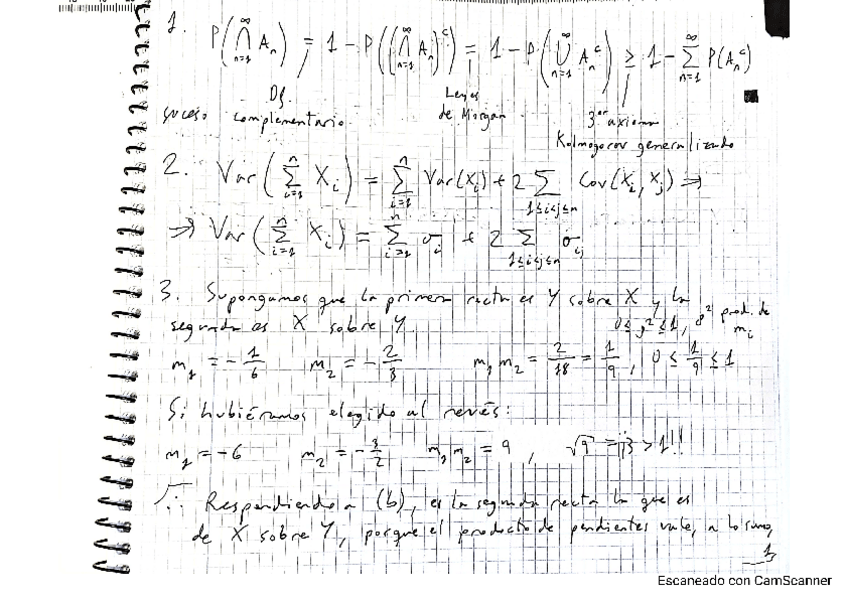 1. P(⋂_{n=1}^{∞} A_n) = 1 - P((⋂_{n=1}^{∞} A_n)^c) = 1 - P(⋃_{n=1}^{∞} A_n^c) ≥ 1 - ∑_{n=1}^{∞} P(A_n^c)
Df. suceso complementario.
Leyes de Morgan
3er axioma Kolmogorov generalizado
2. Var(∑_{i=1}^{n} X_i) = ∑_{i=1}^{n} Var(X_i) + 2 ∑_{1≤i<j≤n} Cov(X_i, X_j) ⇒
⇒ Var(∑_{i=1}^{n} X_i) = ∑_{i=1}^{n} σ_i + 2 ∑_{1≤i<j≤n} σ_{ij}
3. Supongamos que la primera recta es Y sobre X y la
segunda es X sobre Y. 0 ≤ ρ² ≤ 1, ρ² prod. de m_i
m_1 = -1/6 m_2 = -2/3 m_1 m_2 = 2/18 = 1/9, 0 ≤ 1/9 ≤ 1
Si hubiéramos elegido al revés:
m_1 = -6 m_2 = -3/2 m_1 m_2 = 9, √9 = ¡¡3 > 1!!
∴ Respondiendo a (b), es la segunda recta la que es
de X sobre Y, porque el producto de pendientes vale, a lo sumo,
1
Escaneado con CamScanner